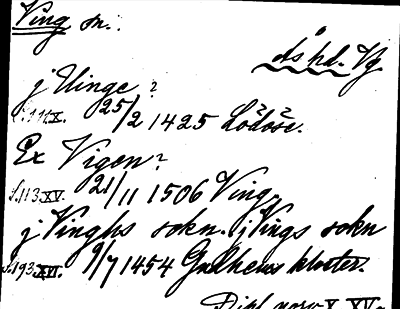 Ving sn.
Ås hd. Vg.
j Uinge ?
25/2 1425 Lödöse.
Ex Vigen ?
s. 113 XV. 21/11 1506 Ving.
j Vinghs sokn. j Vings sokn
s. 193 XVI. 9/7 1454 Gudhems kloster.
Dipl. norv. X XV.